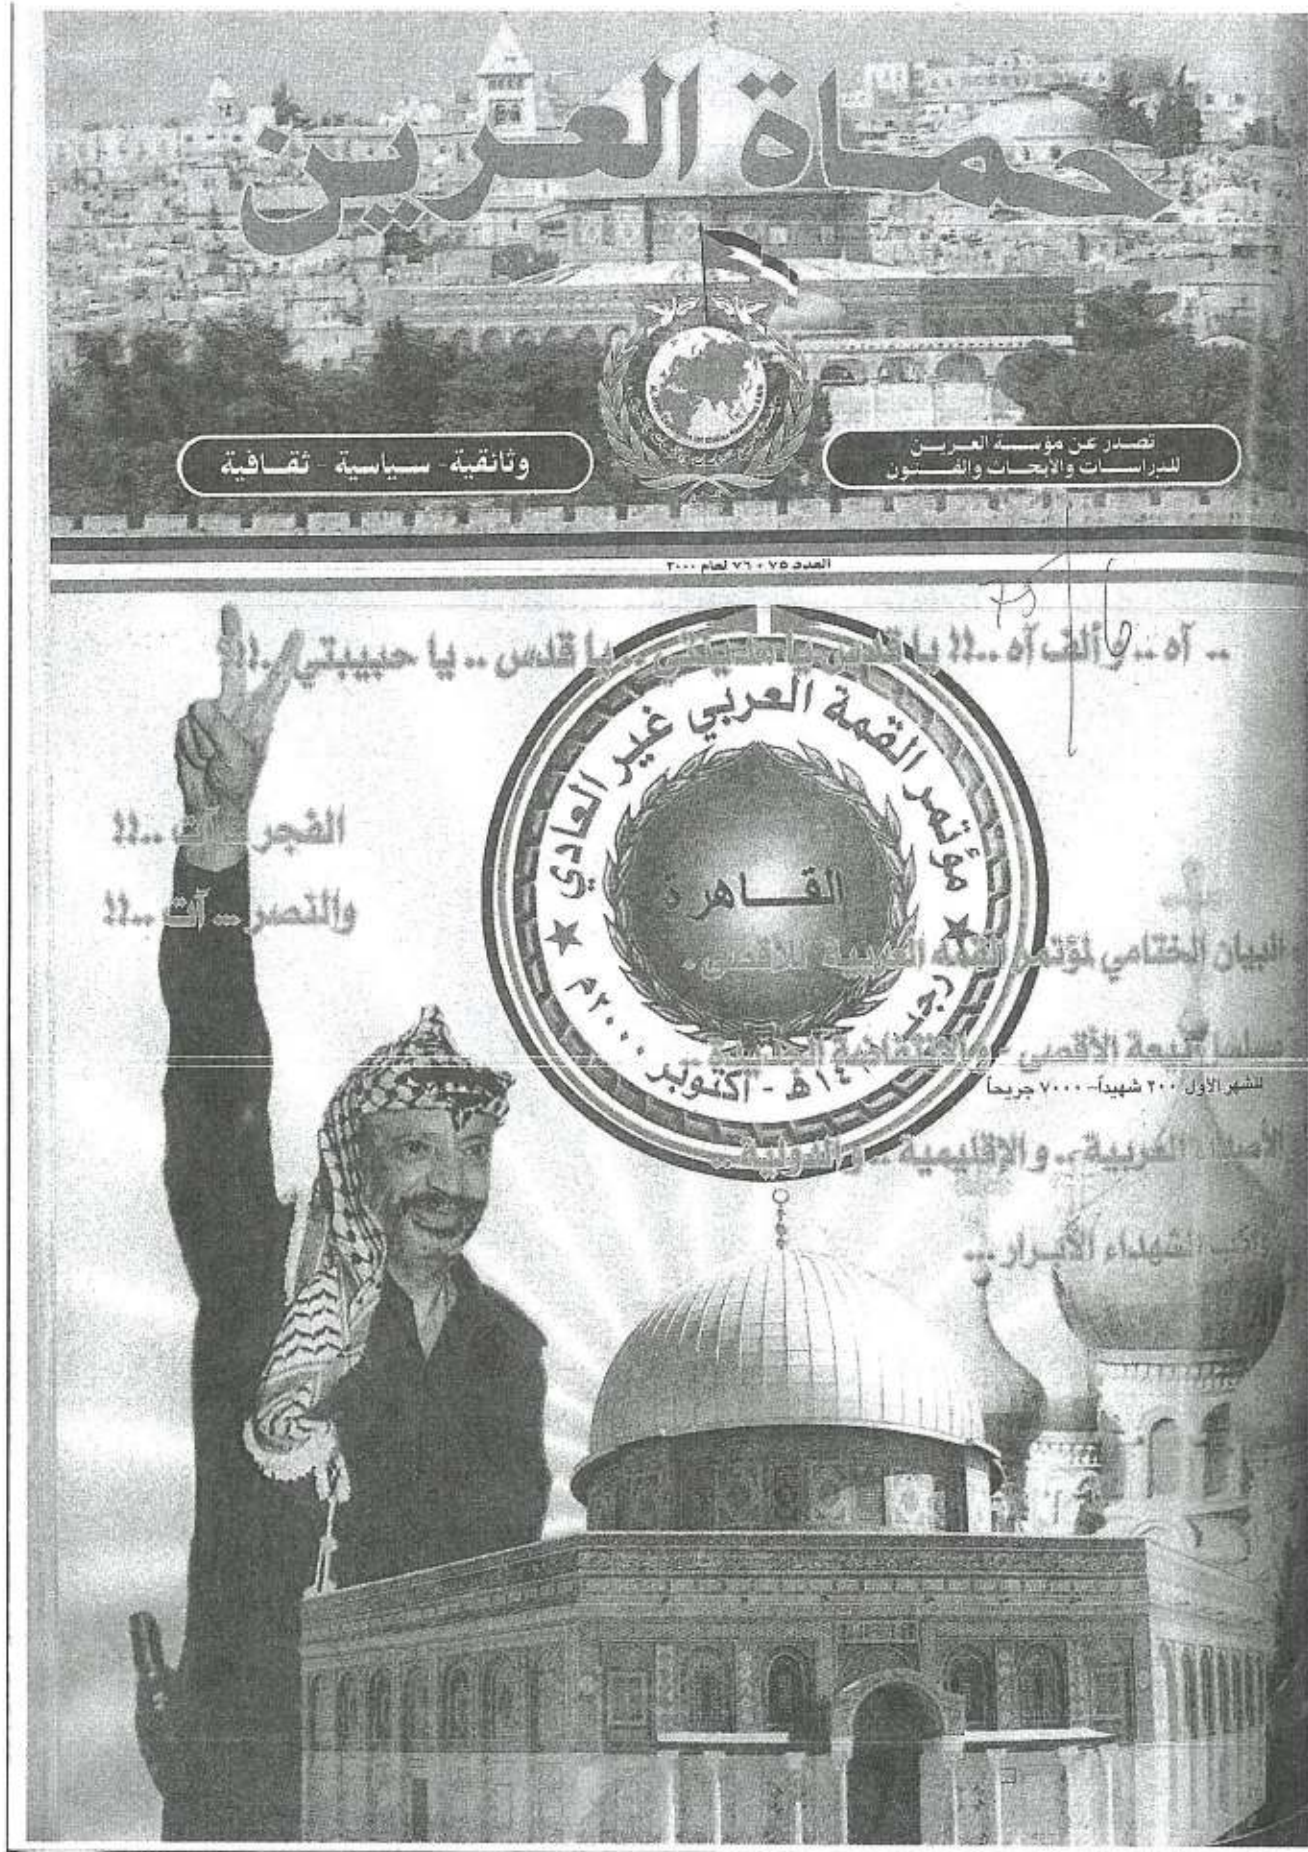 حماة العرين
تصدر عن مؤسسة العرين
للدراسات والأبحاث والفنون
وثائقية - سياسية - ثقافية
العدد ٧٥ + ٧٦ لعام ٢٠٠٠
75 76
.. آه .. وألف آه ..!! يا قدس يا .. يا قدس .. يا حبيبتي ..!!
مؤتمر القمة العربي غير العادي
القاهرة
رجب ١٤ هـ - اكتوبر ٢٠٠٠م
الفجر ... آت ..!!
والنصر ... آت ..!!
البيان الختامي لمؤتمر القمة العربية للأقصى.
الأقصى -
للشهر الأول ٢٠٠ شهيداً - ٧٠٠٠ جريحاً
العربية .. و الإقليمية .. والدولية ..
الشهداء الأبرار ...